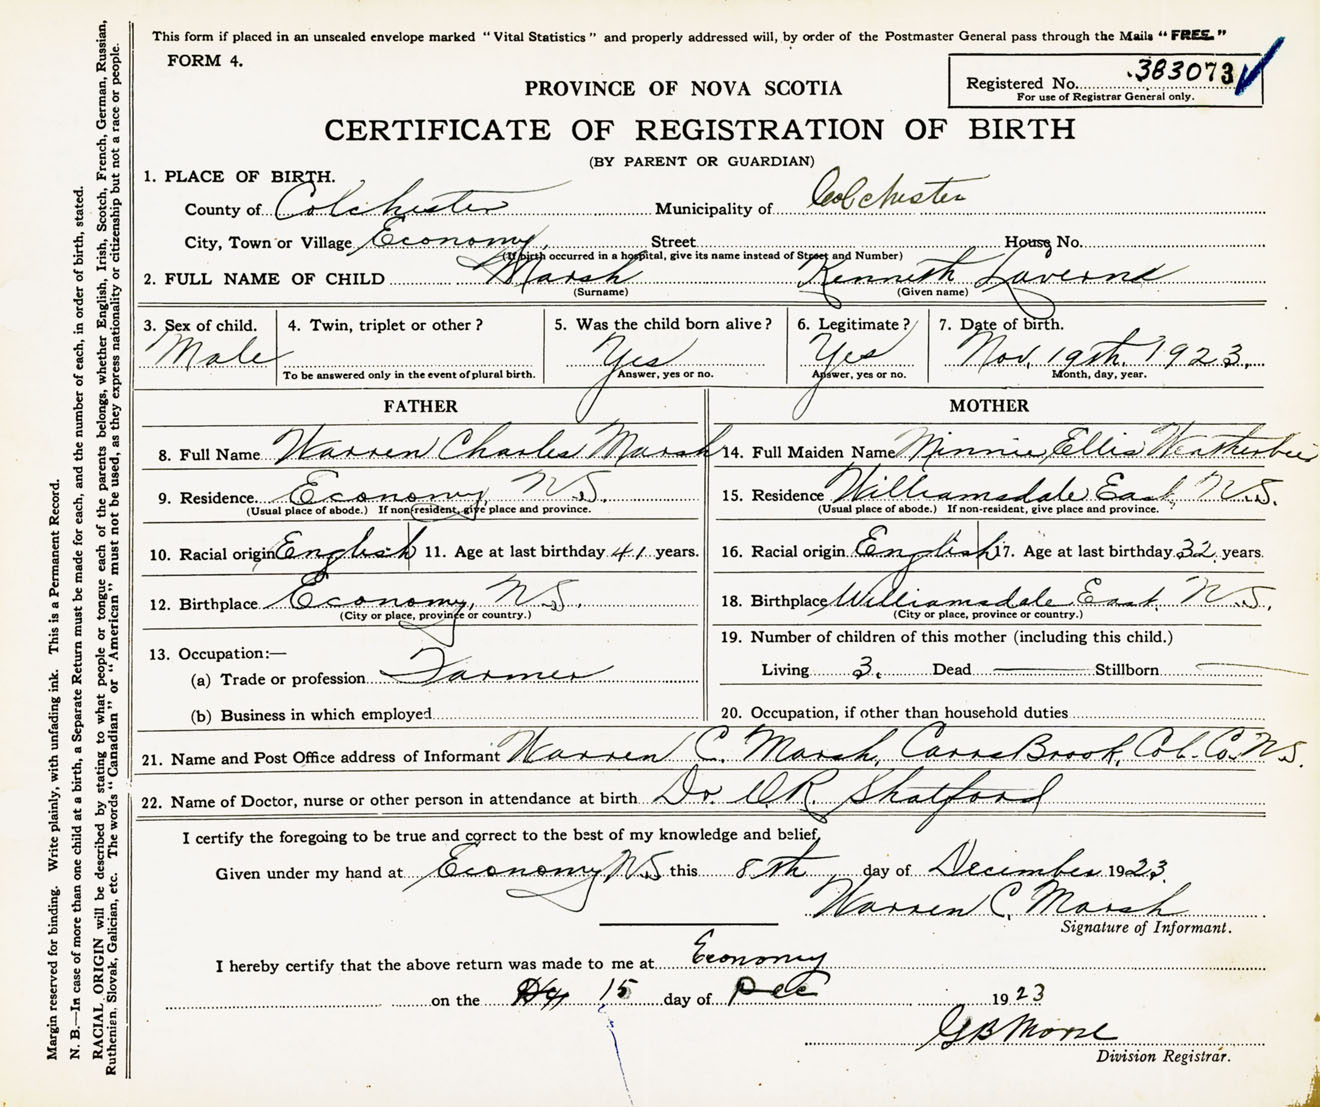 This form if placed in an unsealed envelope marked "Vital Statistics" and properly addressed will, by order of the Postmaster General pass through the Mails "FREE."
FORM 4.
Registered No. 383073
For use of Registrar General only.
PROVINCE OF NOVA SCOTIA
CERTIFICATE OF REGISTRATION OF BIRTH
(BY PARENT OR GUARDIAN)
1. PLACE OF BIRTH.
County of Colchester Municipality of Colchester
City, Town or Village Economy, Street House No.
(If birth occurred in a hospital, give its name instead of Street and Number)
2. FULL NAME OF CHILD Marsh Kenneth Laverne
(Surname) (Given name)
3. Sex of child. 4. Twin, triplet or other? 5. Was the child born alive? 6. Legitimate? 7. Date of birth.
Male Yes Yes Nov. 19th. 1923.
To be answered only in the event of plural birth. Answer, yes or no. Answer, yes or no. Month, day, year.
FATHER MOTHER
8. Full Name Warren Charles Marsh 14. Full Maiden Name Minnie Ellis Weatherbie
9. Residence. Economy, N.S. 15. Residence Williamsdale East, N.S.
(Usual place of abode.) If non-resident, give place and province. (Usual place of abode.) If non-resident, give place and province.
10. Racial origin English 11. Age at last birthday 41 years. 16. Racial origin English 17. Age at last birthday 32 years.
12. Birthplace Economy, N.S. 18. Birthplace Williamsdale East, N.S.
(City or place, province or country.) (City or place, province or country.)
13. Occupation:— 19. Number of children of this mother (including this child.)
(a) Trade or profession Farmer Living 3. Dead Stillborn
(b) Business in which employed 20. Occupation, if other than household duties
21. Name and Post Office address of Informant Warren C. Marsh, Carrs Brook, Col. Co. N.S.
22. Name of Doctor, nurse or other person in attendance at birth Dr. Shatford
I certify the foregoing to be true and correct to the best of my knowledge and belief,
Given under my hand at Economy N.S this 8th day of December 1923.
Warren C. Marsh
Signature of Informant.
I hereby certify that the above return was made to me at Economy
on the 15 day of Dec 1923
Division Registrar.
Margin reserved for binding. Write plainly, with unfading ink. This is a Permanent Record.
N. B.—In case of more than one child at a birth, a Separate Return must be made for each, and the number of each, in order of birth, stated.
RACIAL ORIGIN will be described by stating to what people or tongue each of the parents belongs, whether English, Irish, Scotch, French, German, Russian,
Ruthenian, Slovak, Galician, etc. The words "Canadian" or "American" must not be used, as they express nationality or citizenship but not a race or people.